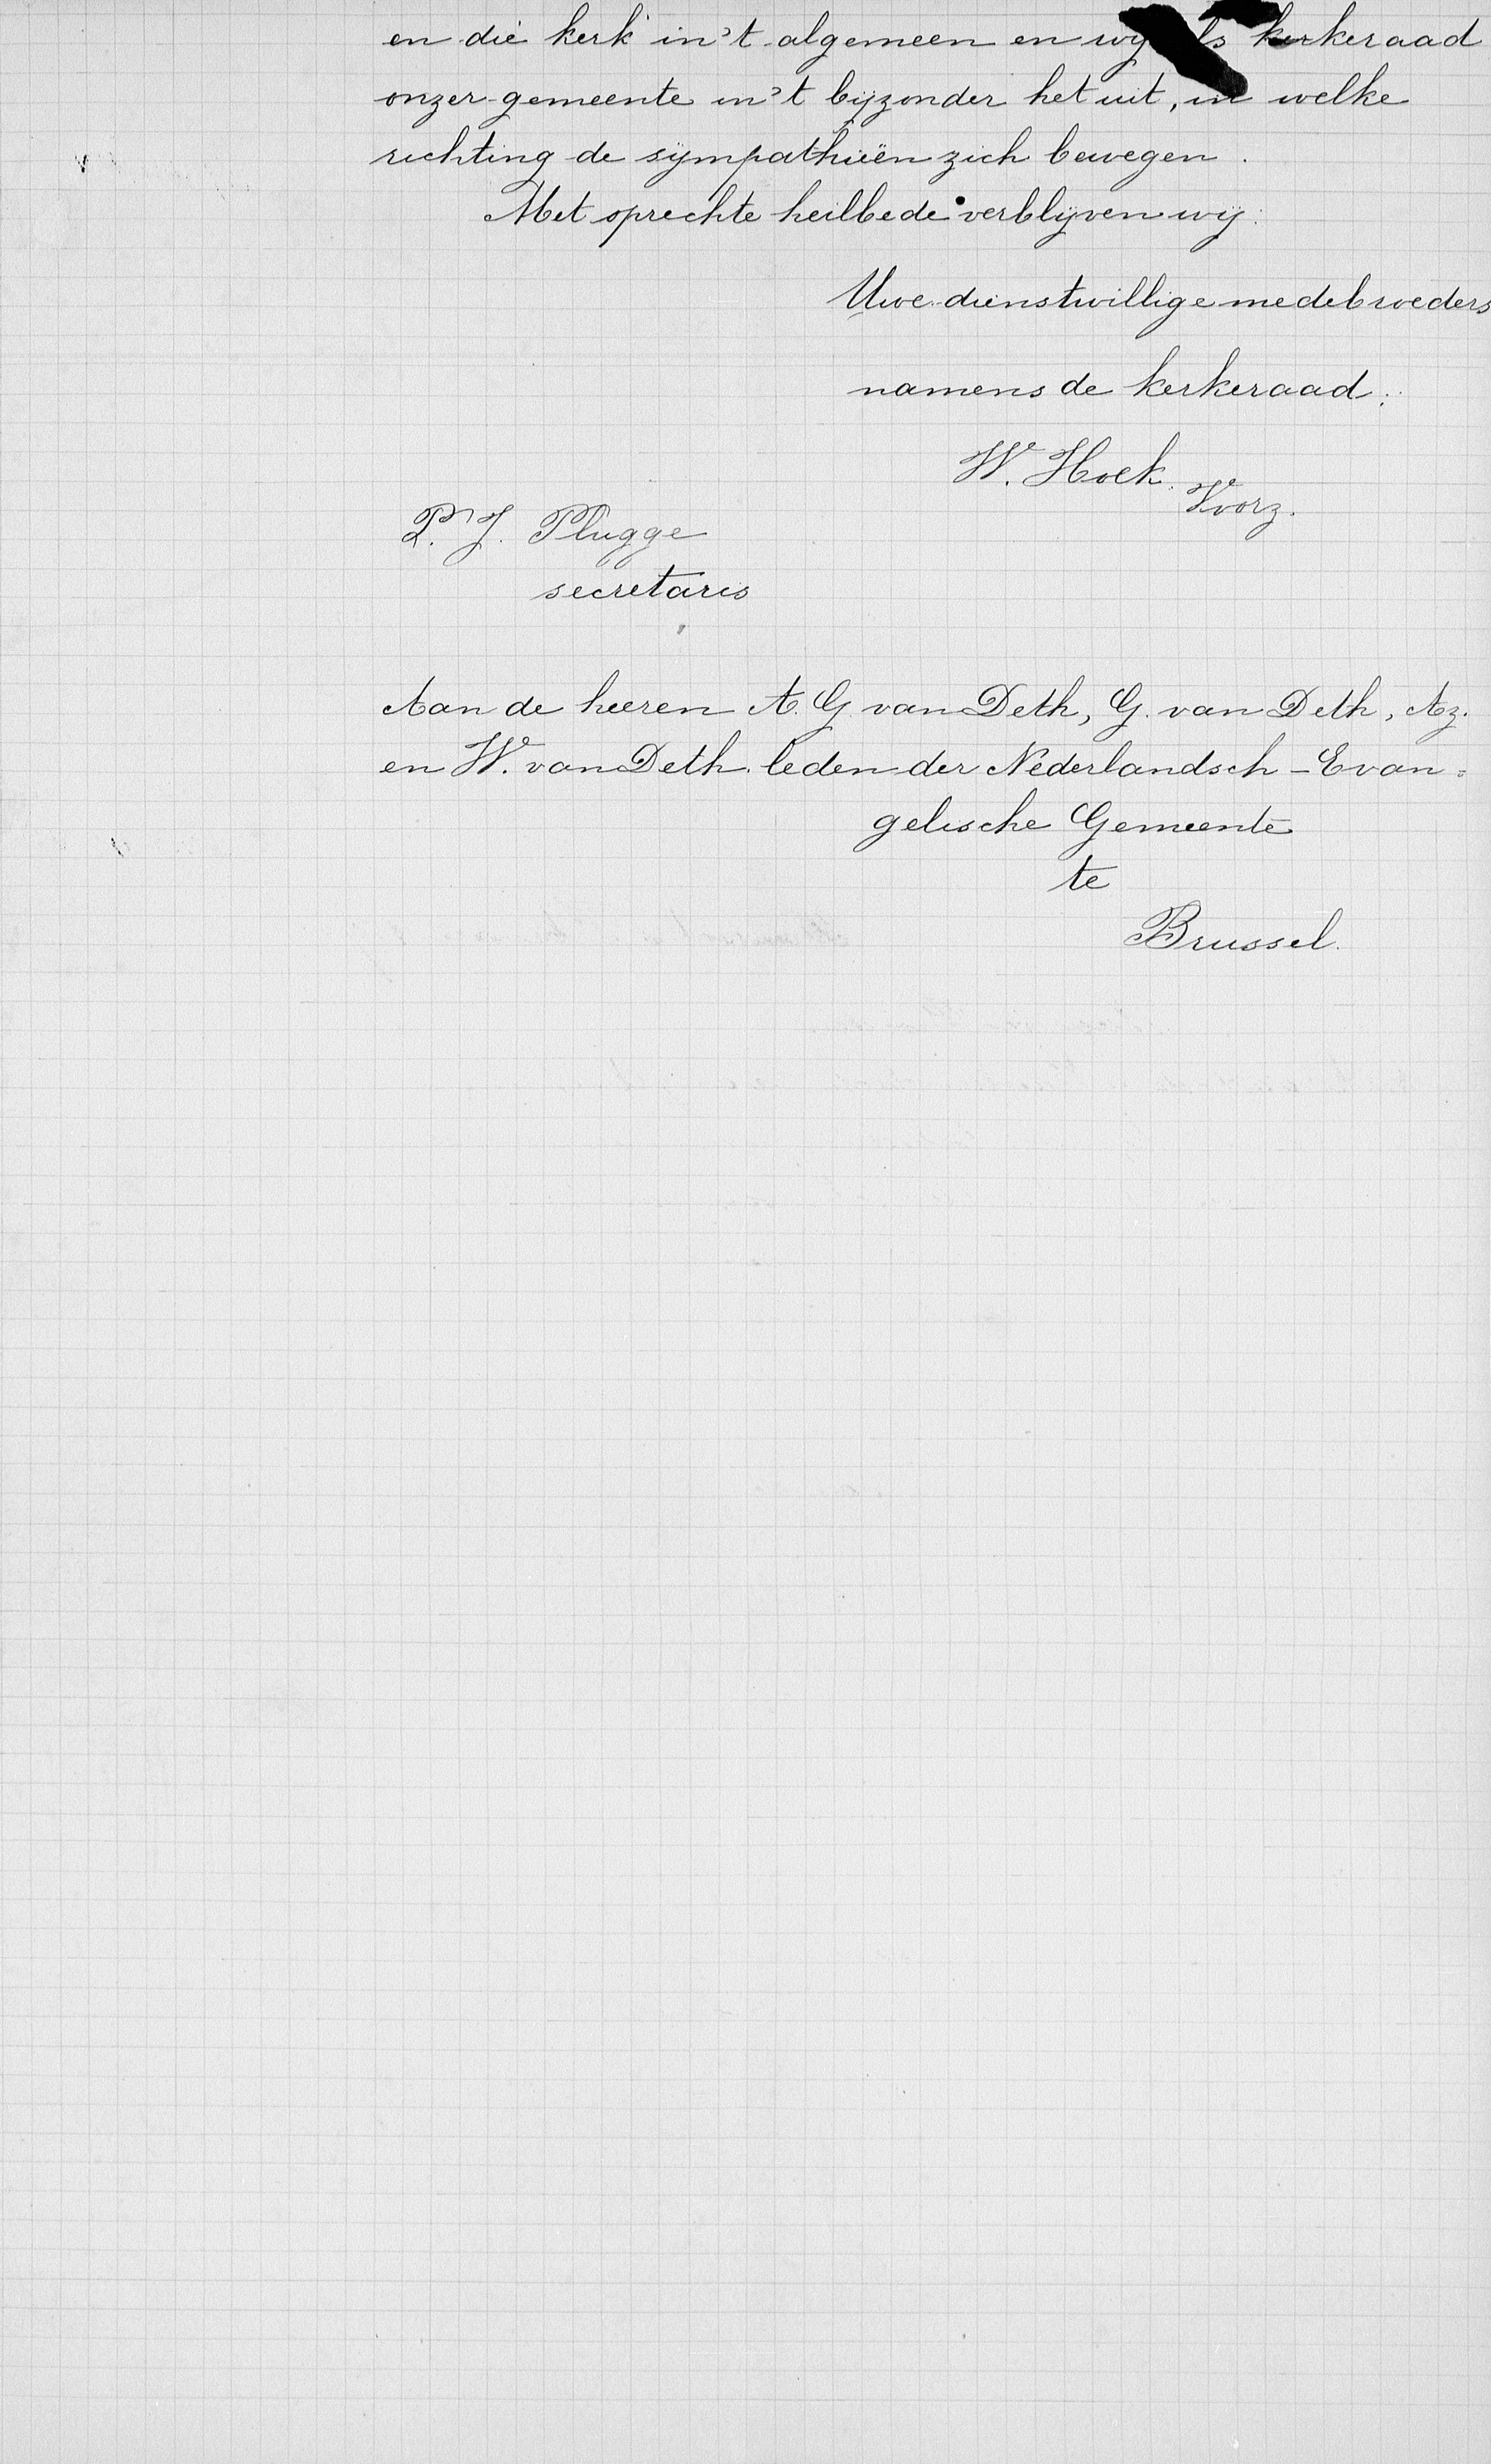 en die kerk in 't algemeen en wij als kerkeraad
onzer gemeente in 't bijzonder het uit, in welke
richting de sympathiën zich bewegen.
Met oprechte heilbede verblijven wij:
Uwe dienstwillige medebroeders
namens de kerkeraad:
W. Hoek. Voorz.
P. J. Plugge
secretaris
Aan de heeren A. G. van Deth, G. van Deth, Az.
en W. van Deth. leden der Nederlandsch-Evan=
gelische Gemeente
te
Brussel.